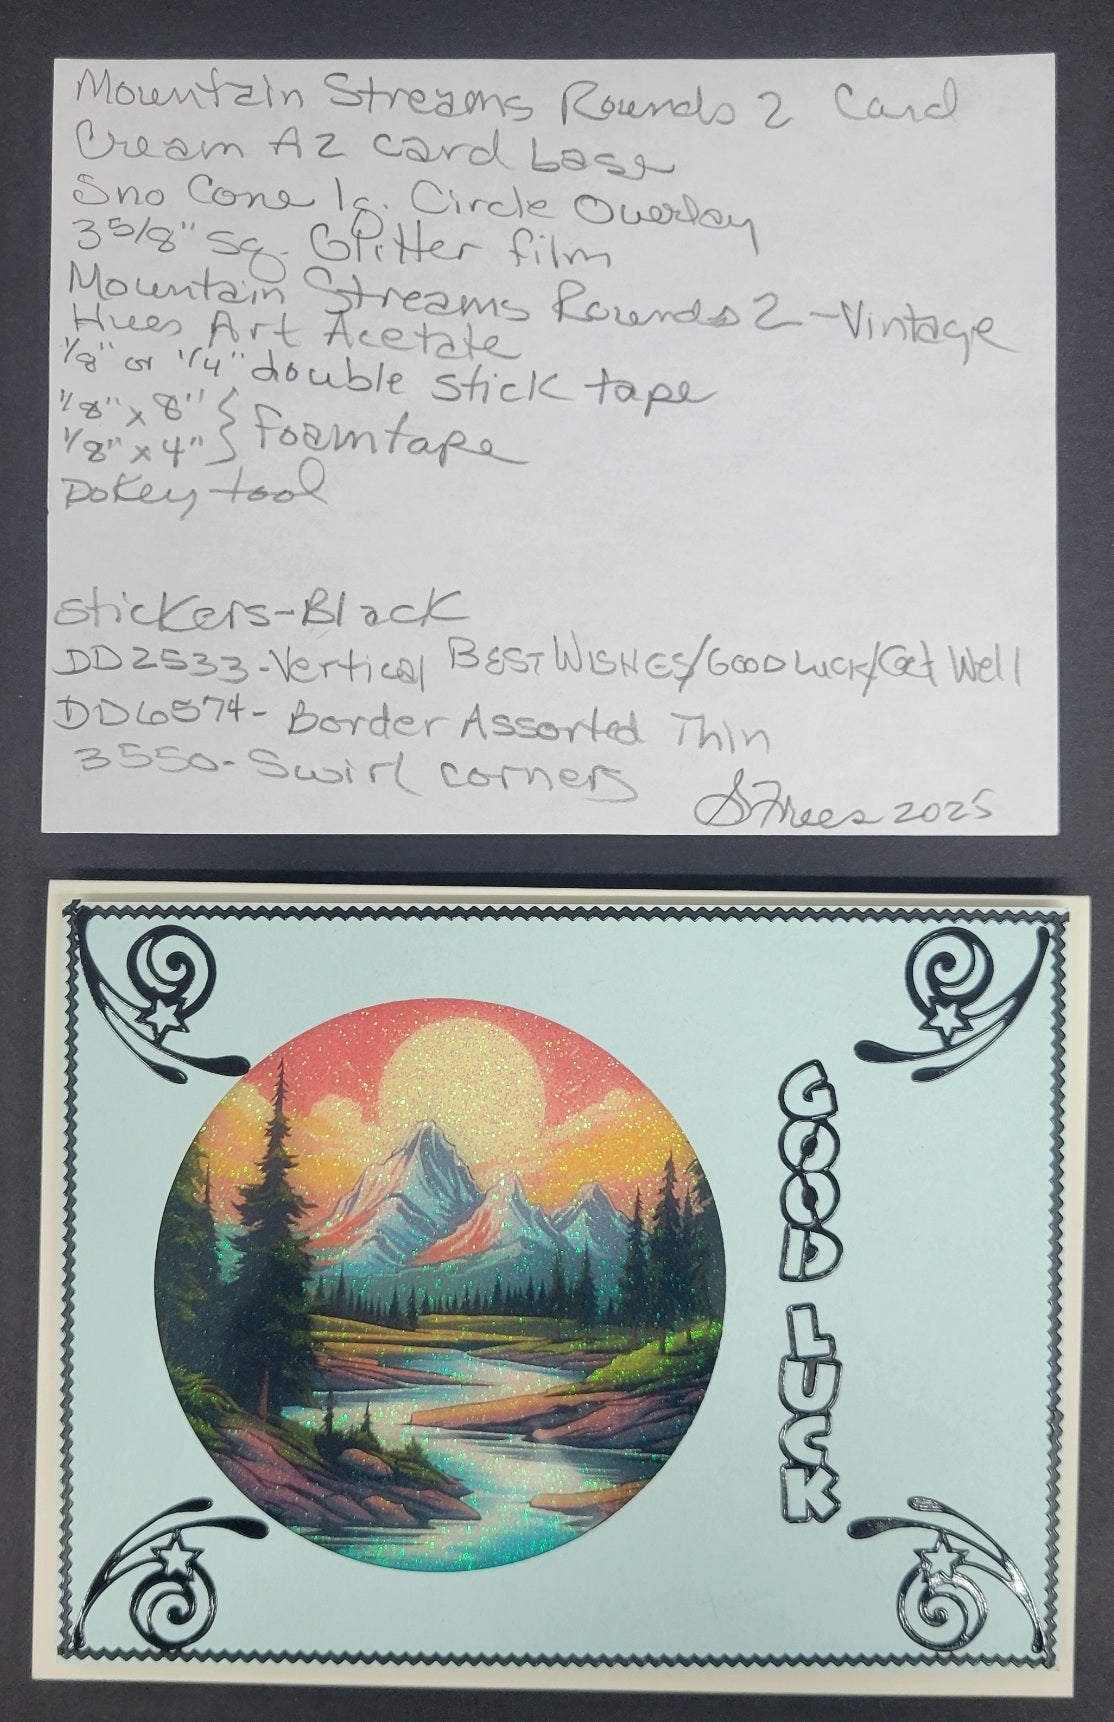 Mountain Streams Rounds 2 Card
Cream A2 card base
Sno Cone lg. Circle Overlay
3 5/8" sq. Glitter film
Mountain Streams Rounds 2 - Vintage
Hues Art Acetate
1/8" or 1/4" double stick tape
1/8" x 8" } foam tape
1/8" x 4"
Pokey tool
Stickers - Black
DD2533 - Vertical BEST WISHES/GOOD LUCK/Get Well
DD6574 - Border Assorted Thin
3550 - Swirl corners
S Frees 2025
GOOD LUCK